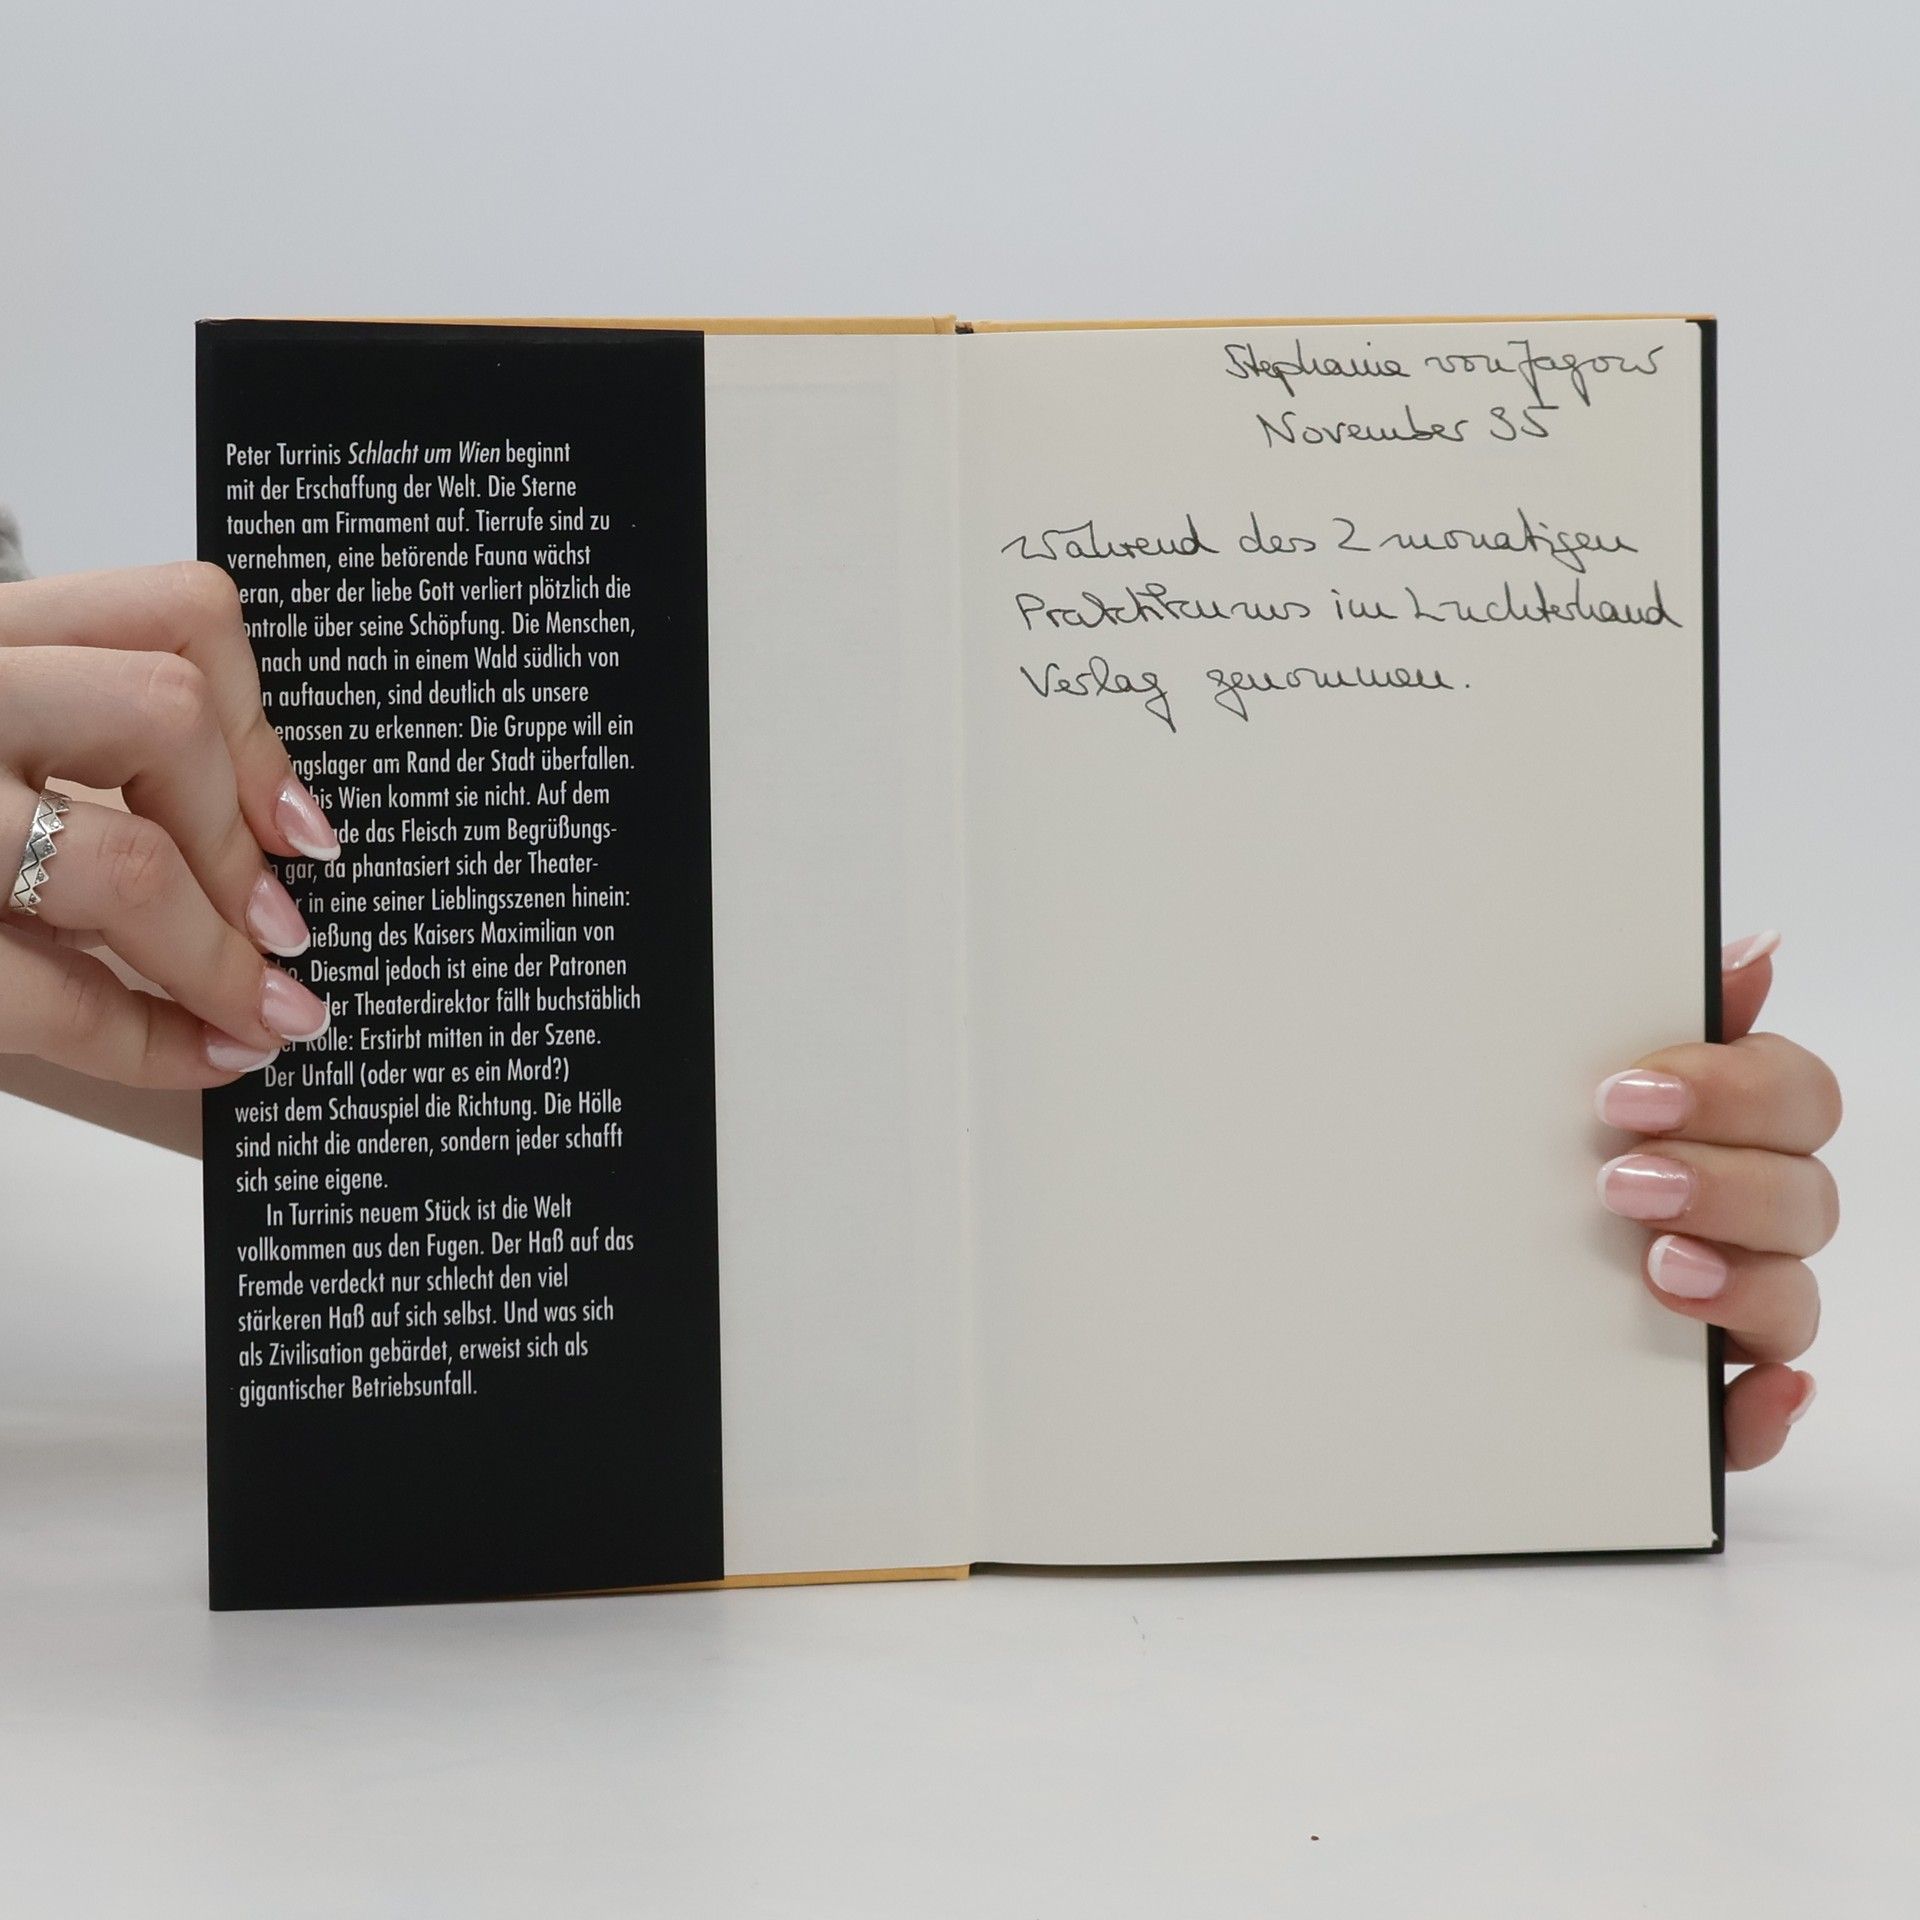 Peter Turrinis Schlacht um Wien beginnt
mit der Erschaffung der Welt. Die Sterne
tauchen am Firmament auf. Tierrufe sind zu
vernehmen, eine betörende Fauna wächst
eran, aber der liebe Gott verliert plötzlich die
ontrolle über seine Schöpfung. Die Menschen,
nach und nach in einem Wald südlich von
n auftauchen, sind deutlich als unsere
enossen zu erkennen: Die Gruppe will ein
ngslager am Rand der Stadt überfallen.
bis Wien kommt sie nicht. Auf dem
de das Fleisch zum Begrüßungs-
gar, da phantasiert sich der Theater-
r in eine seiner Lieblingsszenen hinein:
ießung des Kaisers Maximilian von
o. Diesmal jedoch ist eine der Patronen
der Theaterdirektor fällt buchstäblich
er Rolle: Er stirbt mitten in der Szene.
Der Unfall (oder war es ein Mord?)
weist dem Schauspiel die Richtung. Die Hölle
sind nicht die anderen, sondern jeder schafft
sich seine eigene.
In Turrinis neuem Stück ist die Welt
vollkommen aus den Fugen. Der Haß auf das
Fremde verdeckt nur schlecht den viel
stärkeren Haß auf sich selbst. Und was sich
als Zivilisation gebärdet, erweist sich als
gigantischer Betriebsunfall.
Stephanie von Jagow
November 95
Während des 2 monatigen
Praktikums im Luchterhand
Verlag genommen.